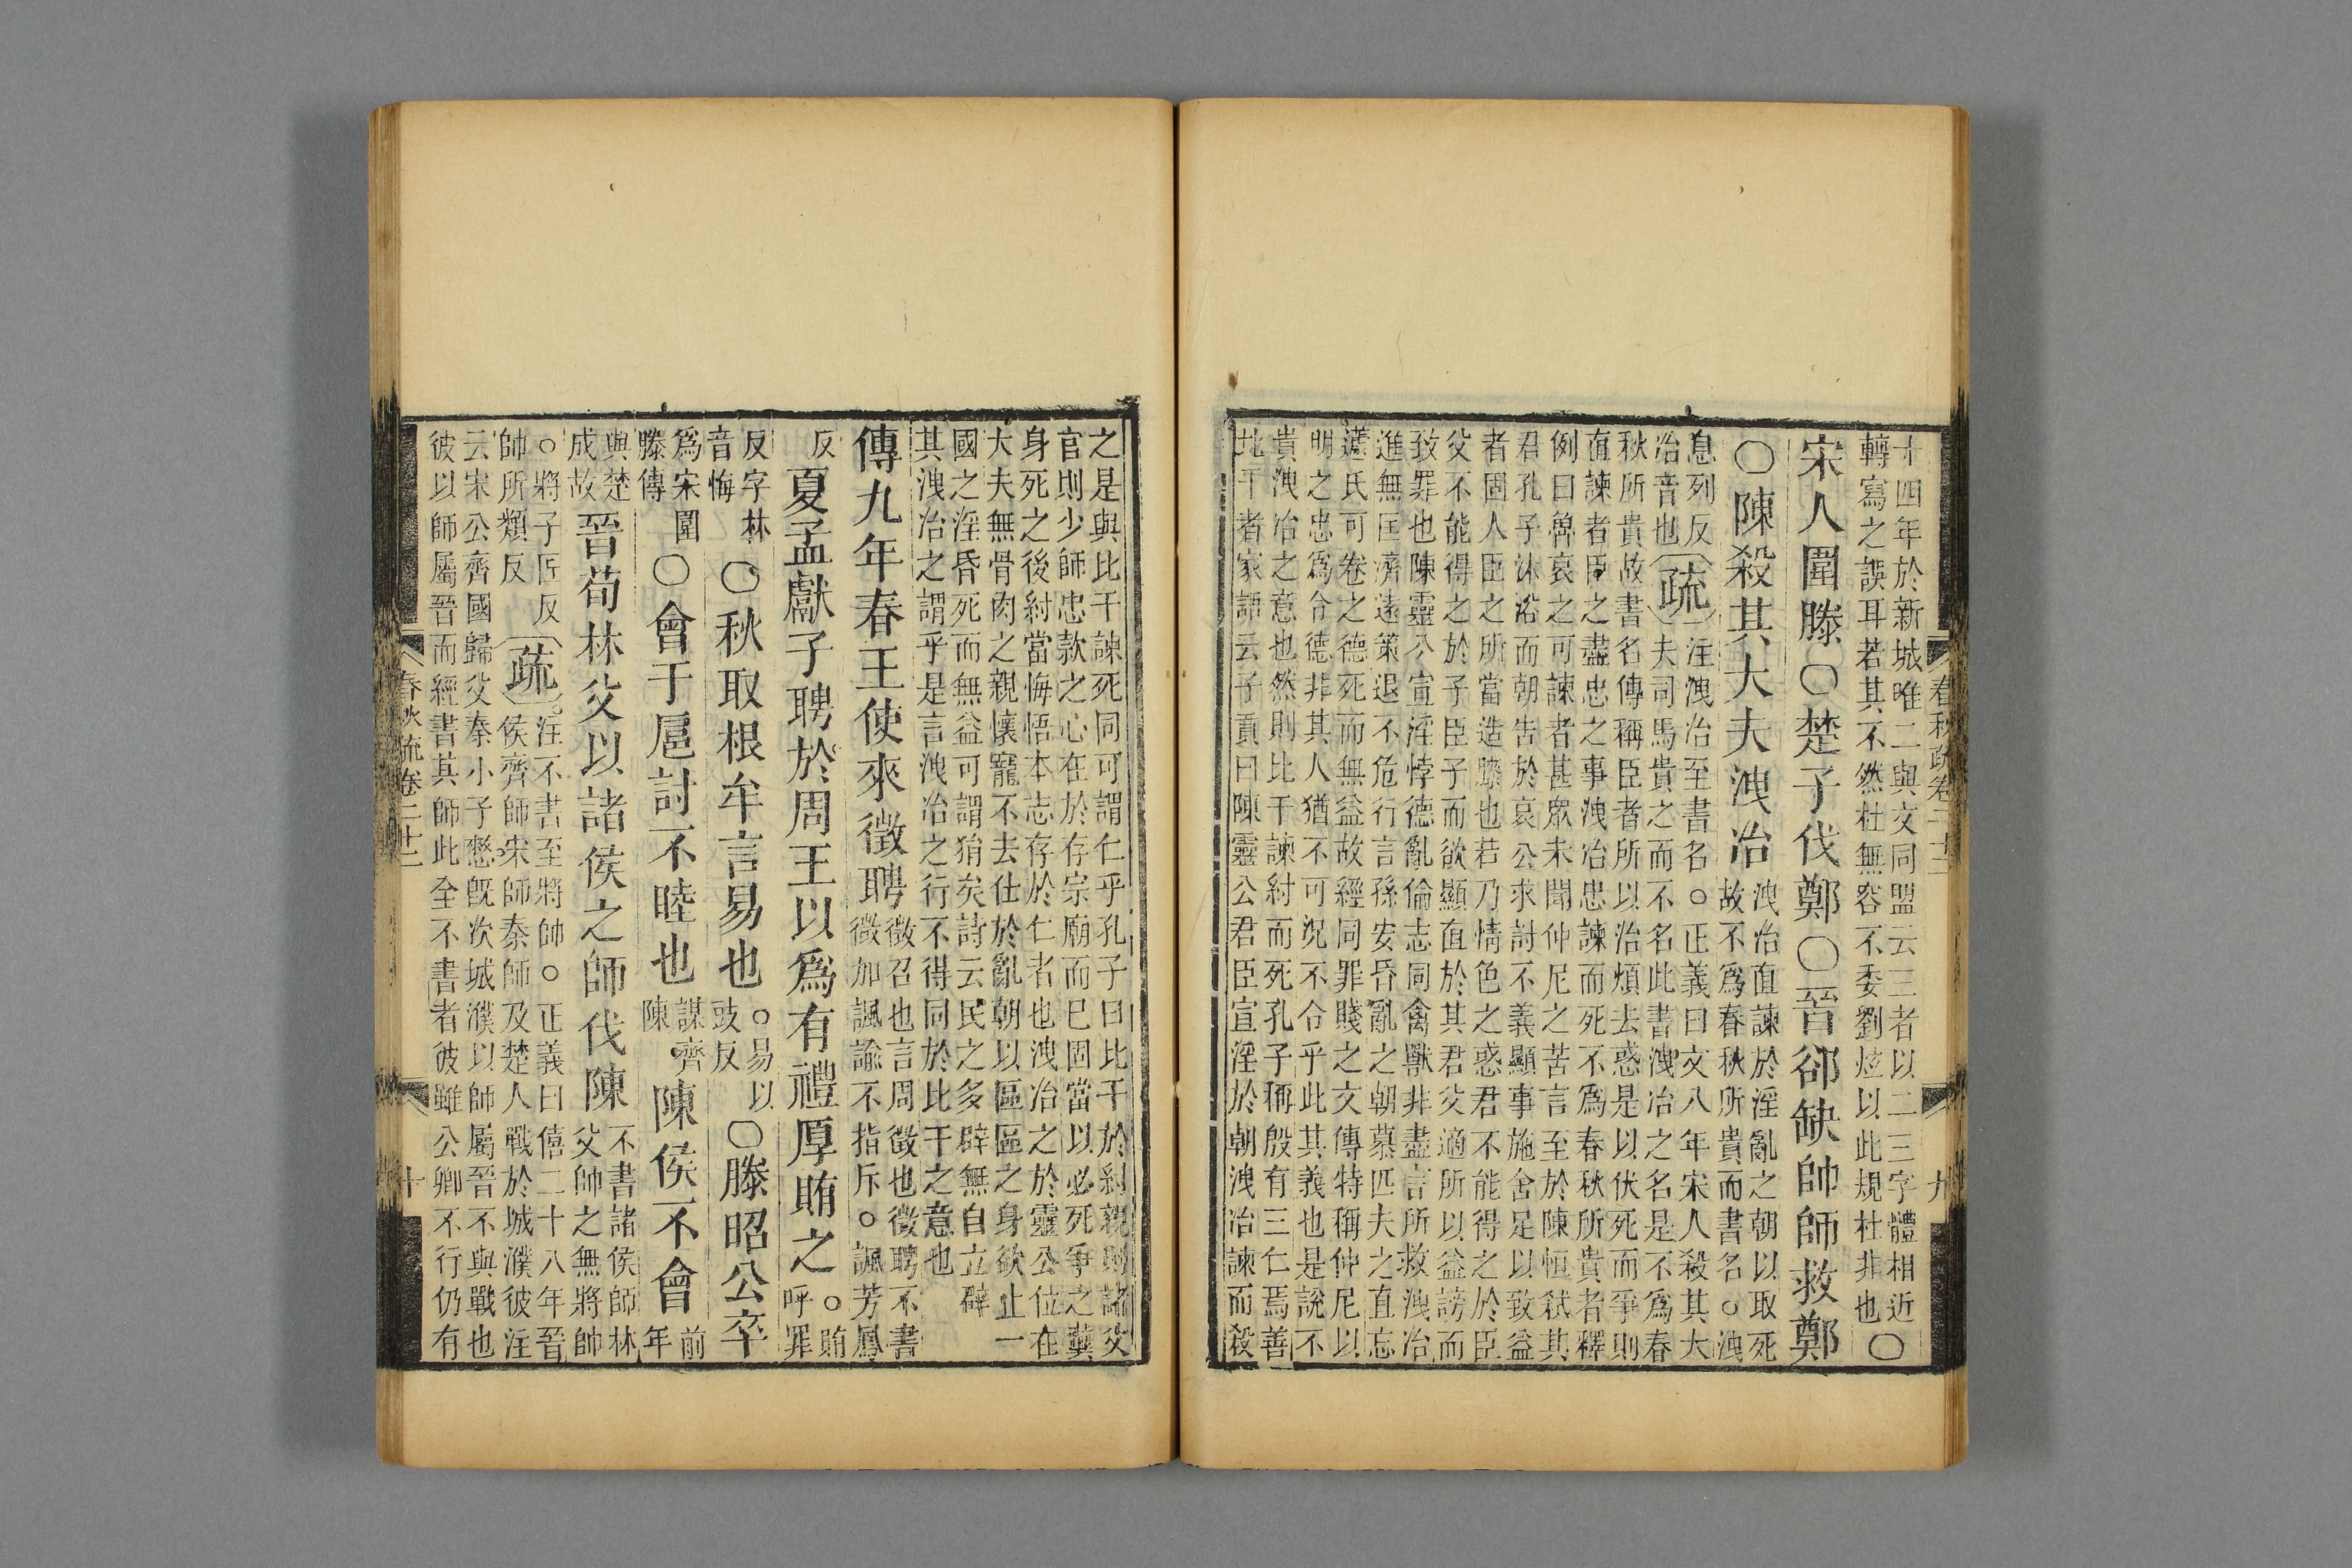 十四年於新城唯二與文同盟云三者以二三字體相近
轉寫之誤耳若其不然杜無容不委劉炫以此規杜非也○
宋人圍滕○楚子伐鄭○晉郤缺帥師救鄭
○陳殺其大夫洩冶
洩冶直諫於淫亂之朝以取死
故不爲春秋所貴而書名○洩
息列反
冶音也
疏
注洩冶至書名○正義曰文八年宋人殺其大
夫司馬貴之而不名此書洩冶之名是不爲春
秋所貴故書名傳稱臣者所以治煩去惑是以伏死而爭則
直諫者臣之盡忠之事洩冶忠諫而死不爲春秋所貴者釋
例曰稗哀之可諫者甚眾未聞仲尼之苦言至於陳恒弒其
君孔子沐浴而朝告於哀公求討不義顯事施舍足以致益
者固人臣之所當造膝也若乃情色之惑君不能得之於臣
父不能得之於子臣子而欲顯直於其君父適所以益謗而
致罪也陳靈公宣淫悖德亂倫志同禽獸非盡言所救洩冶
進無匡濟遠策退不危行言孫安昏亂之朝慕匹夫之直忘
蘧氏可卷之德死而無益故經同罪賤之文傳特稱仲尼以
明之忠爲令德非其人猶不可況不令乎此其義也是說不
貴洩冶之意也然則比干諫紂而死孔子稱殷有三仁焉善
比干者家語云子貢曰陳靈公君臣宣淫於朝洩冶諫而殺
春秋疏卷二十二
九
之是與比干諫死同可謂仁乎孔子曰比干於紂親則諸父
官則少師忠款之心在於存宗廟而已固當以必死爭之冀
身死之後紂當悔悟本志存於仁者也洩冶之於靈公位在
大夫無骨肉之親懷寵不去仕於亂朝以區區之身欲止一
國之淫昏死而無益可謂狷矣詩云民之多辟無自立辟
其洩冶之謂乎是言洩冶之行不得同於比干之意也
傳九年春王使來徵聘
徵召也言周徵也徵聘不書
徵加諷諭不指斥○諷芳鳳
反
夏孟獻子聘於周王以爲有禮厚賄之
○賄
呼罪
反字林
音悔
○秋取根牟言易也
○易以
豉反
○滕昭公卒
爲宋圍
滕傳
○會于扈討不睦也
謀齊
陳
陳侯不會
前
年
與楚
成故
晉荀林父以諸侯之師伐陳
不書諸侯師林
父帥之無將帥
○將子匠反
帥所類反
疏
注不書至將帥○正義曰僖二十八年晉
侯齊師宋師秦師及楚人戰於城濮彼注
云宋公齊國歸父秦小子憖旣次城濮以師屬晉不與戰也
彼以師屬晉而經書其師此全不書者彼雖公卿不行仍有
春秋疏卷二十二
十